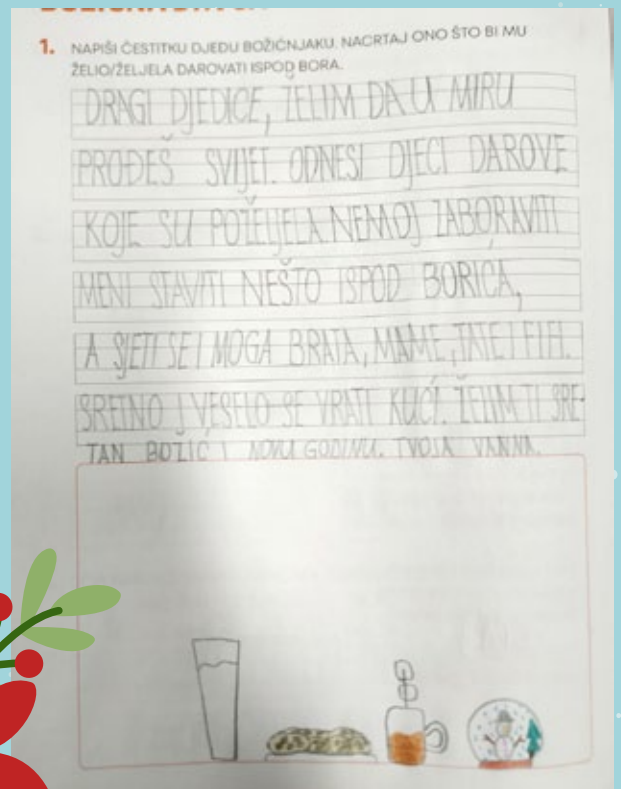 1. NAPIŠI ČESTITKU DJEDU BOŽIĆNJAKU. NACRTAJ ONO ŠTO BI MU
ŽELIO/ŽELJELA DAROVATI ISPOD BORA.
DRAGI DJEDICE, ŽELIM DA U MIRU
PROĐEŠ SVIJET. ODNESI DJECI DAROVE
KOJE SU POŽELJELA. NEMOJ ZABORAVITI
MENI STAVITI NEŠTO ISPOD BORIĆA,
A SJETI SE I MOGA BRATA, MAME, TATE I FIFI.
SRETNO I VESELO SE VRATI KUĆI. ŽELIM TI SRE-
TAN BOŽIĆ I NOVU GODINU. TVOJA VANNA.